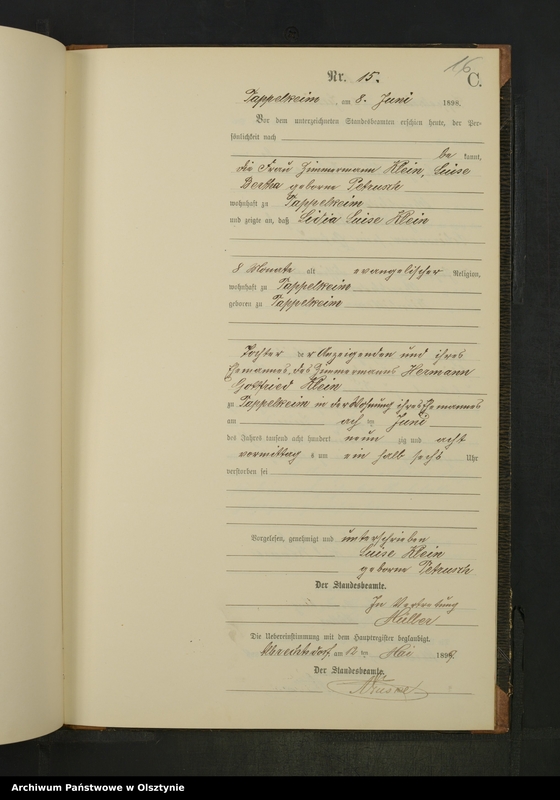 16
C.
Nr. 15.
Tappelkeim, am 8. Juni 1898.
Vor dem unterzeichneten Standesbeamten erschien heute, der Per-
sönlichkeit nach
be kannt,
die Frau Zimmermann Klein, Luise
Bertha geborne Petrusch
wohnhaft zu Tappelkeim
und zeigte an, daß Lidia Luise Klein
8 Monate alt evangelischer Religion,
wohnhaft zu Tappelkeim
geboren zu Tappelkeim
Tochter der Anzeigenden und ihres
Ehemannes, des Zimmermanns Hermann
Gottfried Klein
zu Tappelkeim in der Wohnung ihres Ehemannes
am ach ten Juni
des Jahres tausend acht hundert neun zig und acht
vormittag s um ein halb sechs Uhr
verstorben sei
Vorgelesen, genehmigt und unterschrieben
Luise Klein
geborne Petrusch
Der Standesbeamte.
In Vertretung
Müller
Die Uebereinstimmung mit dem Hauptregister beglaubigt.
Albrechtsdorf, am 12 ten Mai 1899.
Der Standesbeamte.
Archiwum Państwowe w Olsztynie